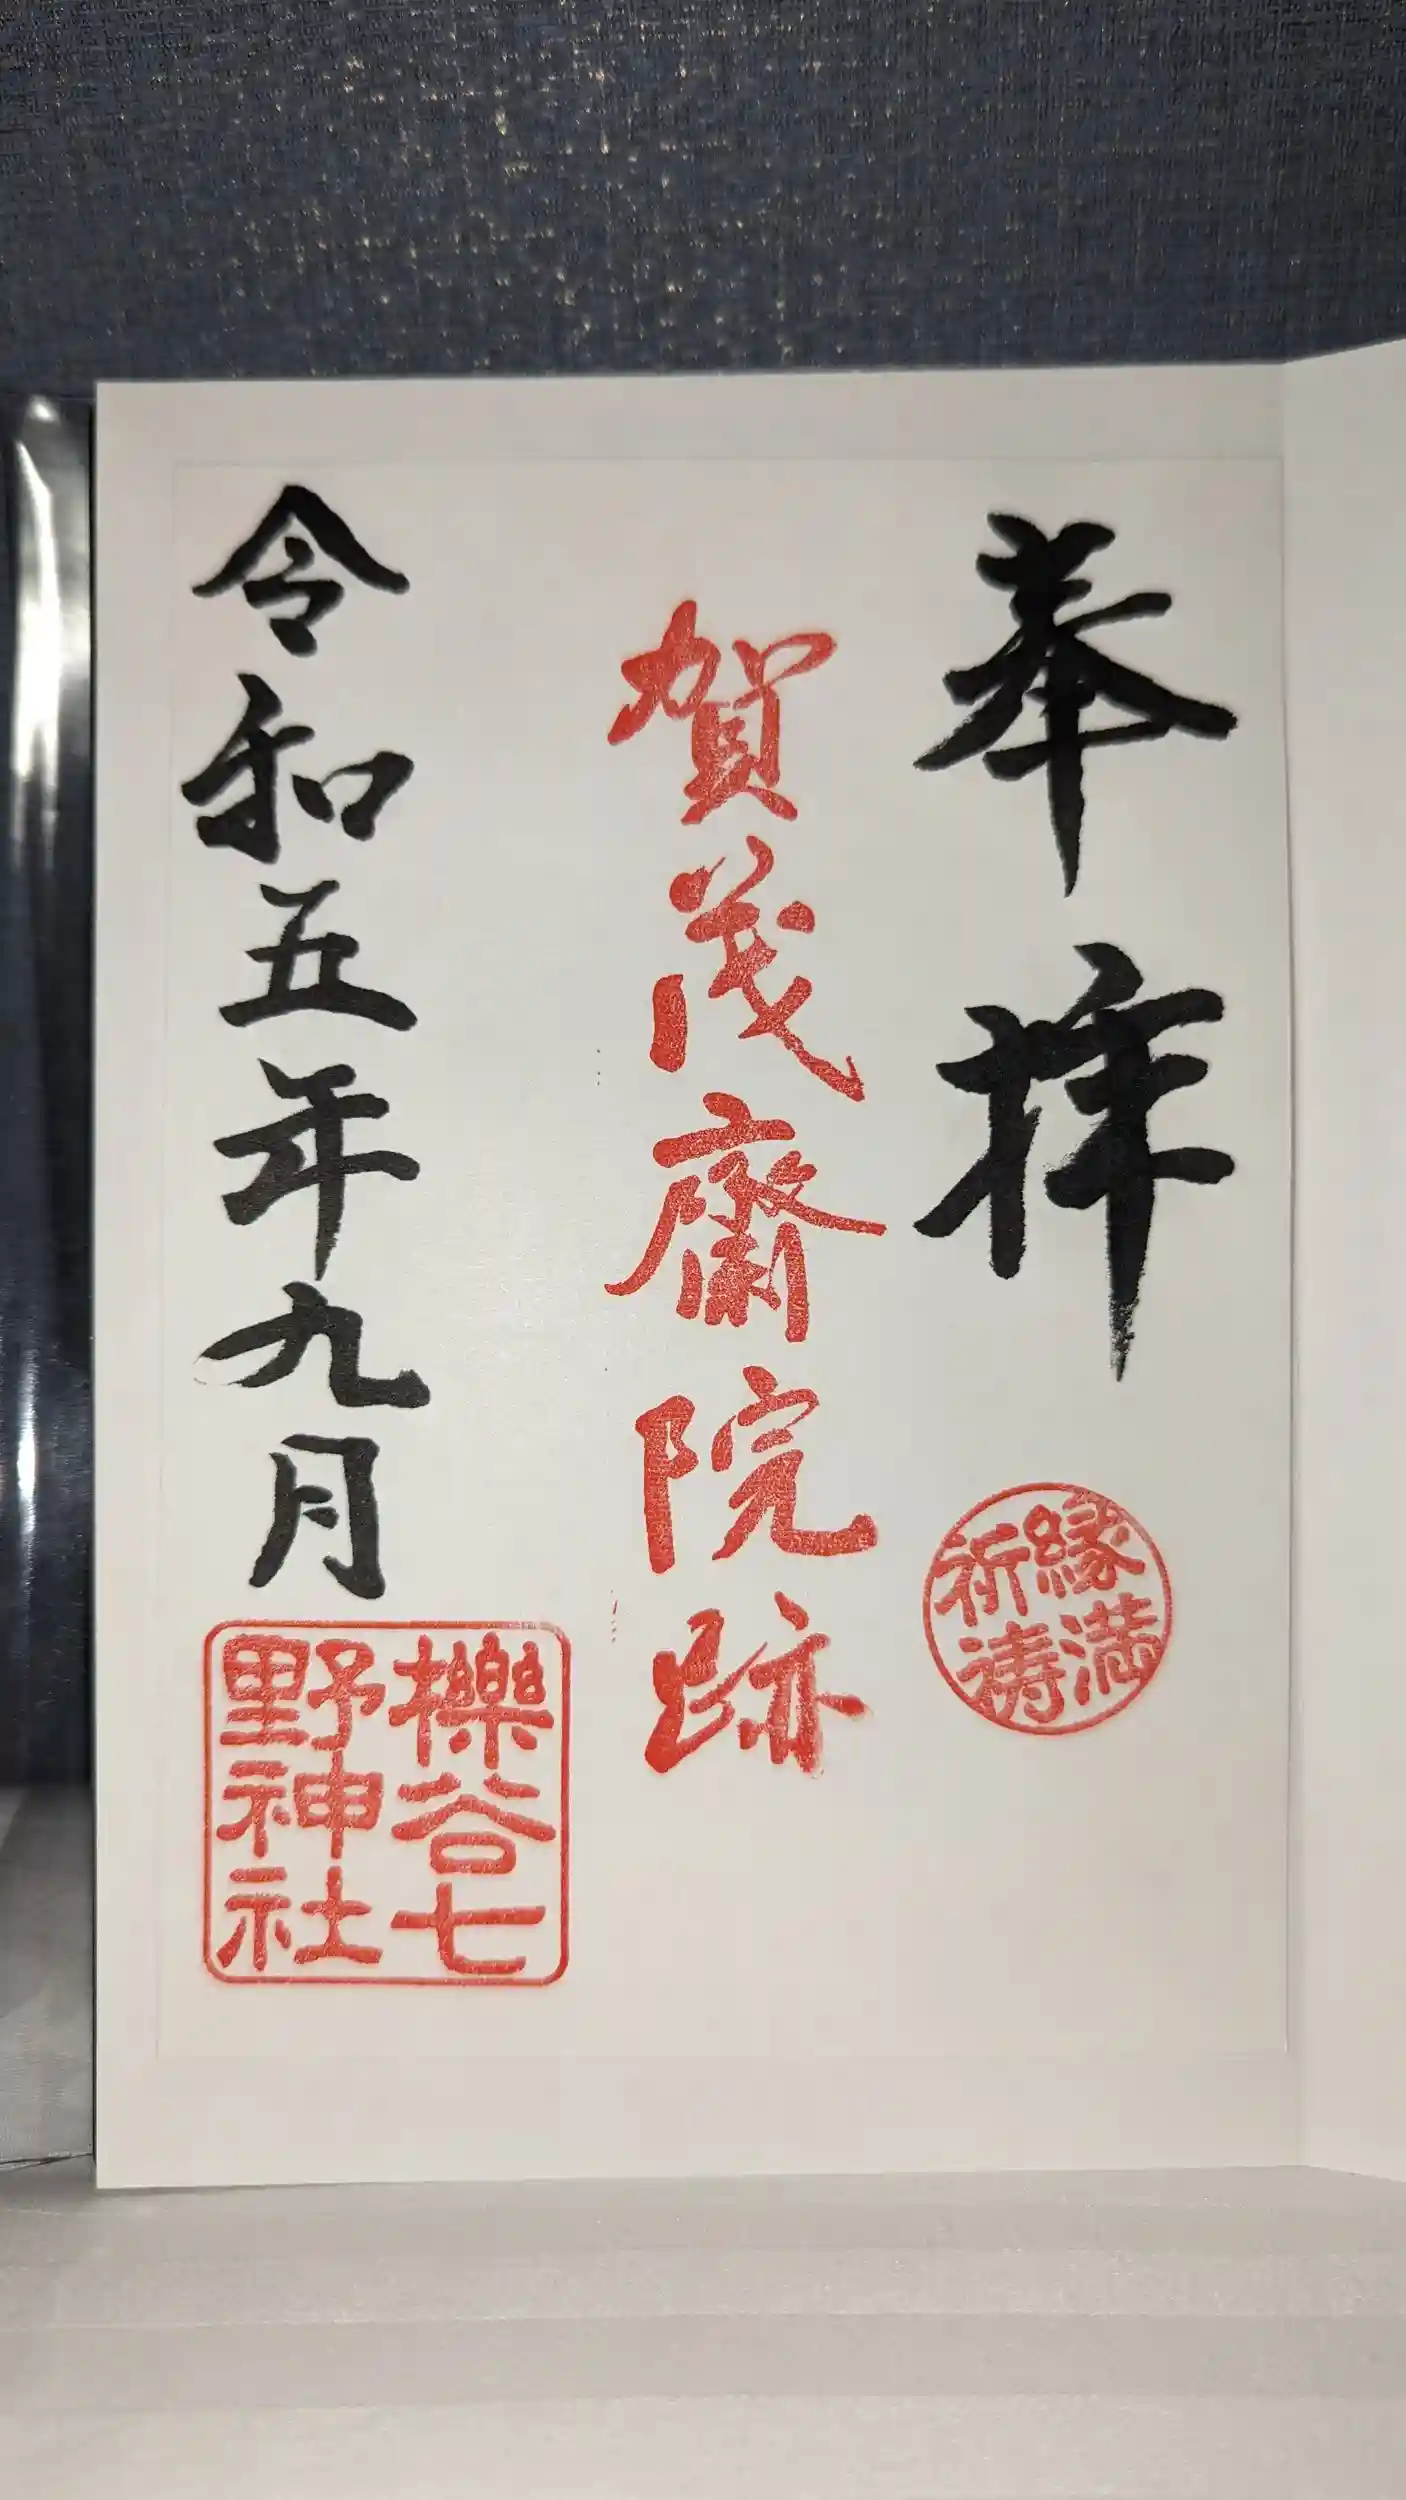 奉拝
縁満
祈祷
賀茂斎院跡
令和五年九月
櫟谷七
野神社